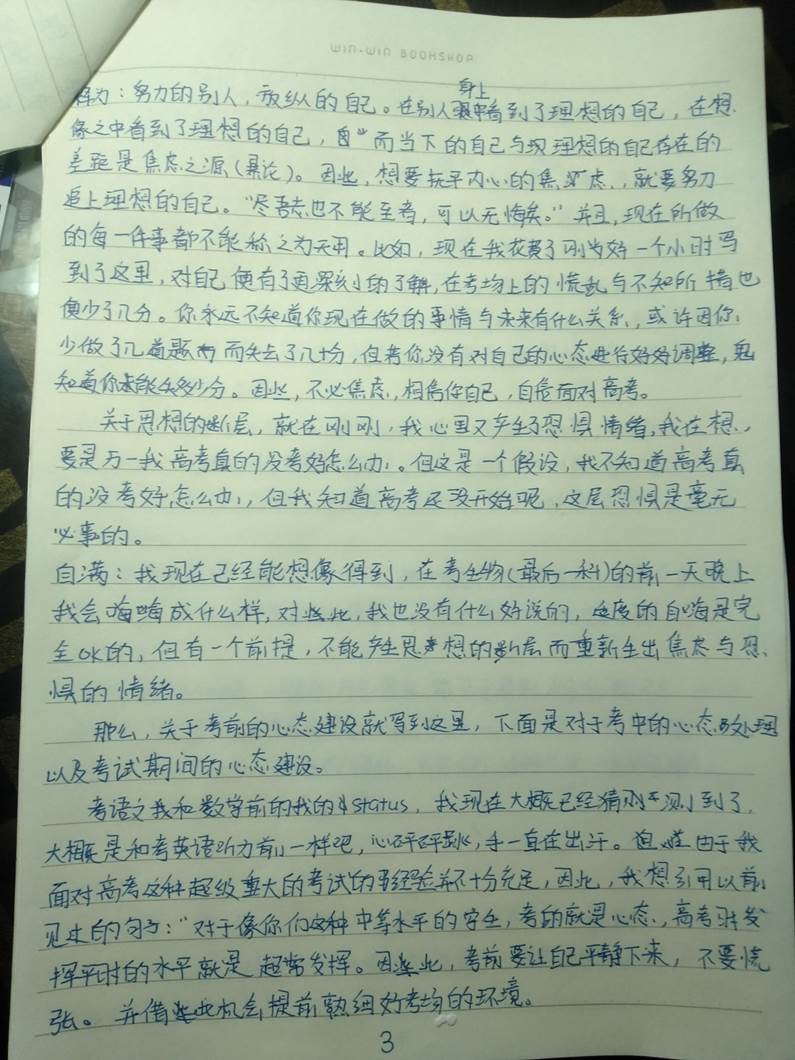 WIN-WIN BOOKSHOP
身上
释为：努力的别人，放纵的自己。在别人看到了理想的自己，在想
像之中看到了理想的自己，而当下的自己与理想的自己存在的
差距是焦虑之源（暴论）。因此，想要抚平内心的焦虑，就要努力
追上理想的自己。“尽吾志也不能至者，可以无悔矣。”并且，现在所做
的每一件事都不能称之为无用。比如，现在我花费了刚好一个小时写
到了这里，对自己便有了更深刻的了解，在考场上的慌乱与不知所措也
便少了几分。你永远不知道你现在做的事情与未来有什么关系，或许因你
少做了几道题而失去了几十分，但若你没有对自己的心态进行好好调整，鬼
知道你能丢多少分。因此，不必焦虑，相信你自己，自信面对高考。
关于思想的断层，就在刚刚，我心里又产生了恐惧情绪，我在想，
要是万一我高考真的没考好怎么办。但这是一个假设，我不知道高考真
的没考好怎么办，但我知道高考还没开始呢，这层恐惧是毫无
必事的。
自满：我现在已经能想像得到，在考生物（最后一科）的前一天晚上
我会嗨成什么样，对此，我也没有什么好说的，适度的自嗨是完
全OK的，但有一个前提，不能产生思想的断层而重新生出焦虑与恐
惧的情绪。
那么，关于考前的心态建设就写到这里，下面是对于考中的心态的处理
以及考试期间的心态建设。
考语文和数学前的我的status，我现在大概已经猜测到了，
大概是和考英语听力前一样吧，心砰砰跳，手一直在出汗。但由于我
面对高考这种超级重大的考试的经验并不十分充足，因此，我想引用以前
见过的句子：“对于像你们这种中等水平的学生，考的就是心态，高考时发
挥平时的水平就是超常发挥。因此，考前要让自己平静下来，不要慌
张。并借此机会提前熟细好考场的环境。
3